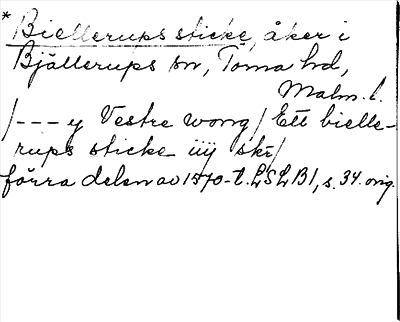 * Biellerups sticke, åker i
Bjällerups sn, Torna hd,
Malm. l.
/--- y Vestre wong/ Ett bielle-
rups sticke iiij skr/
förra delen av 1570-t. LSLB1, s. 34. orig.